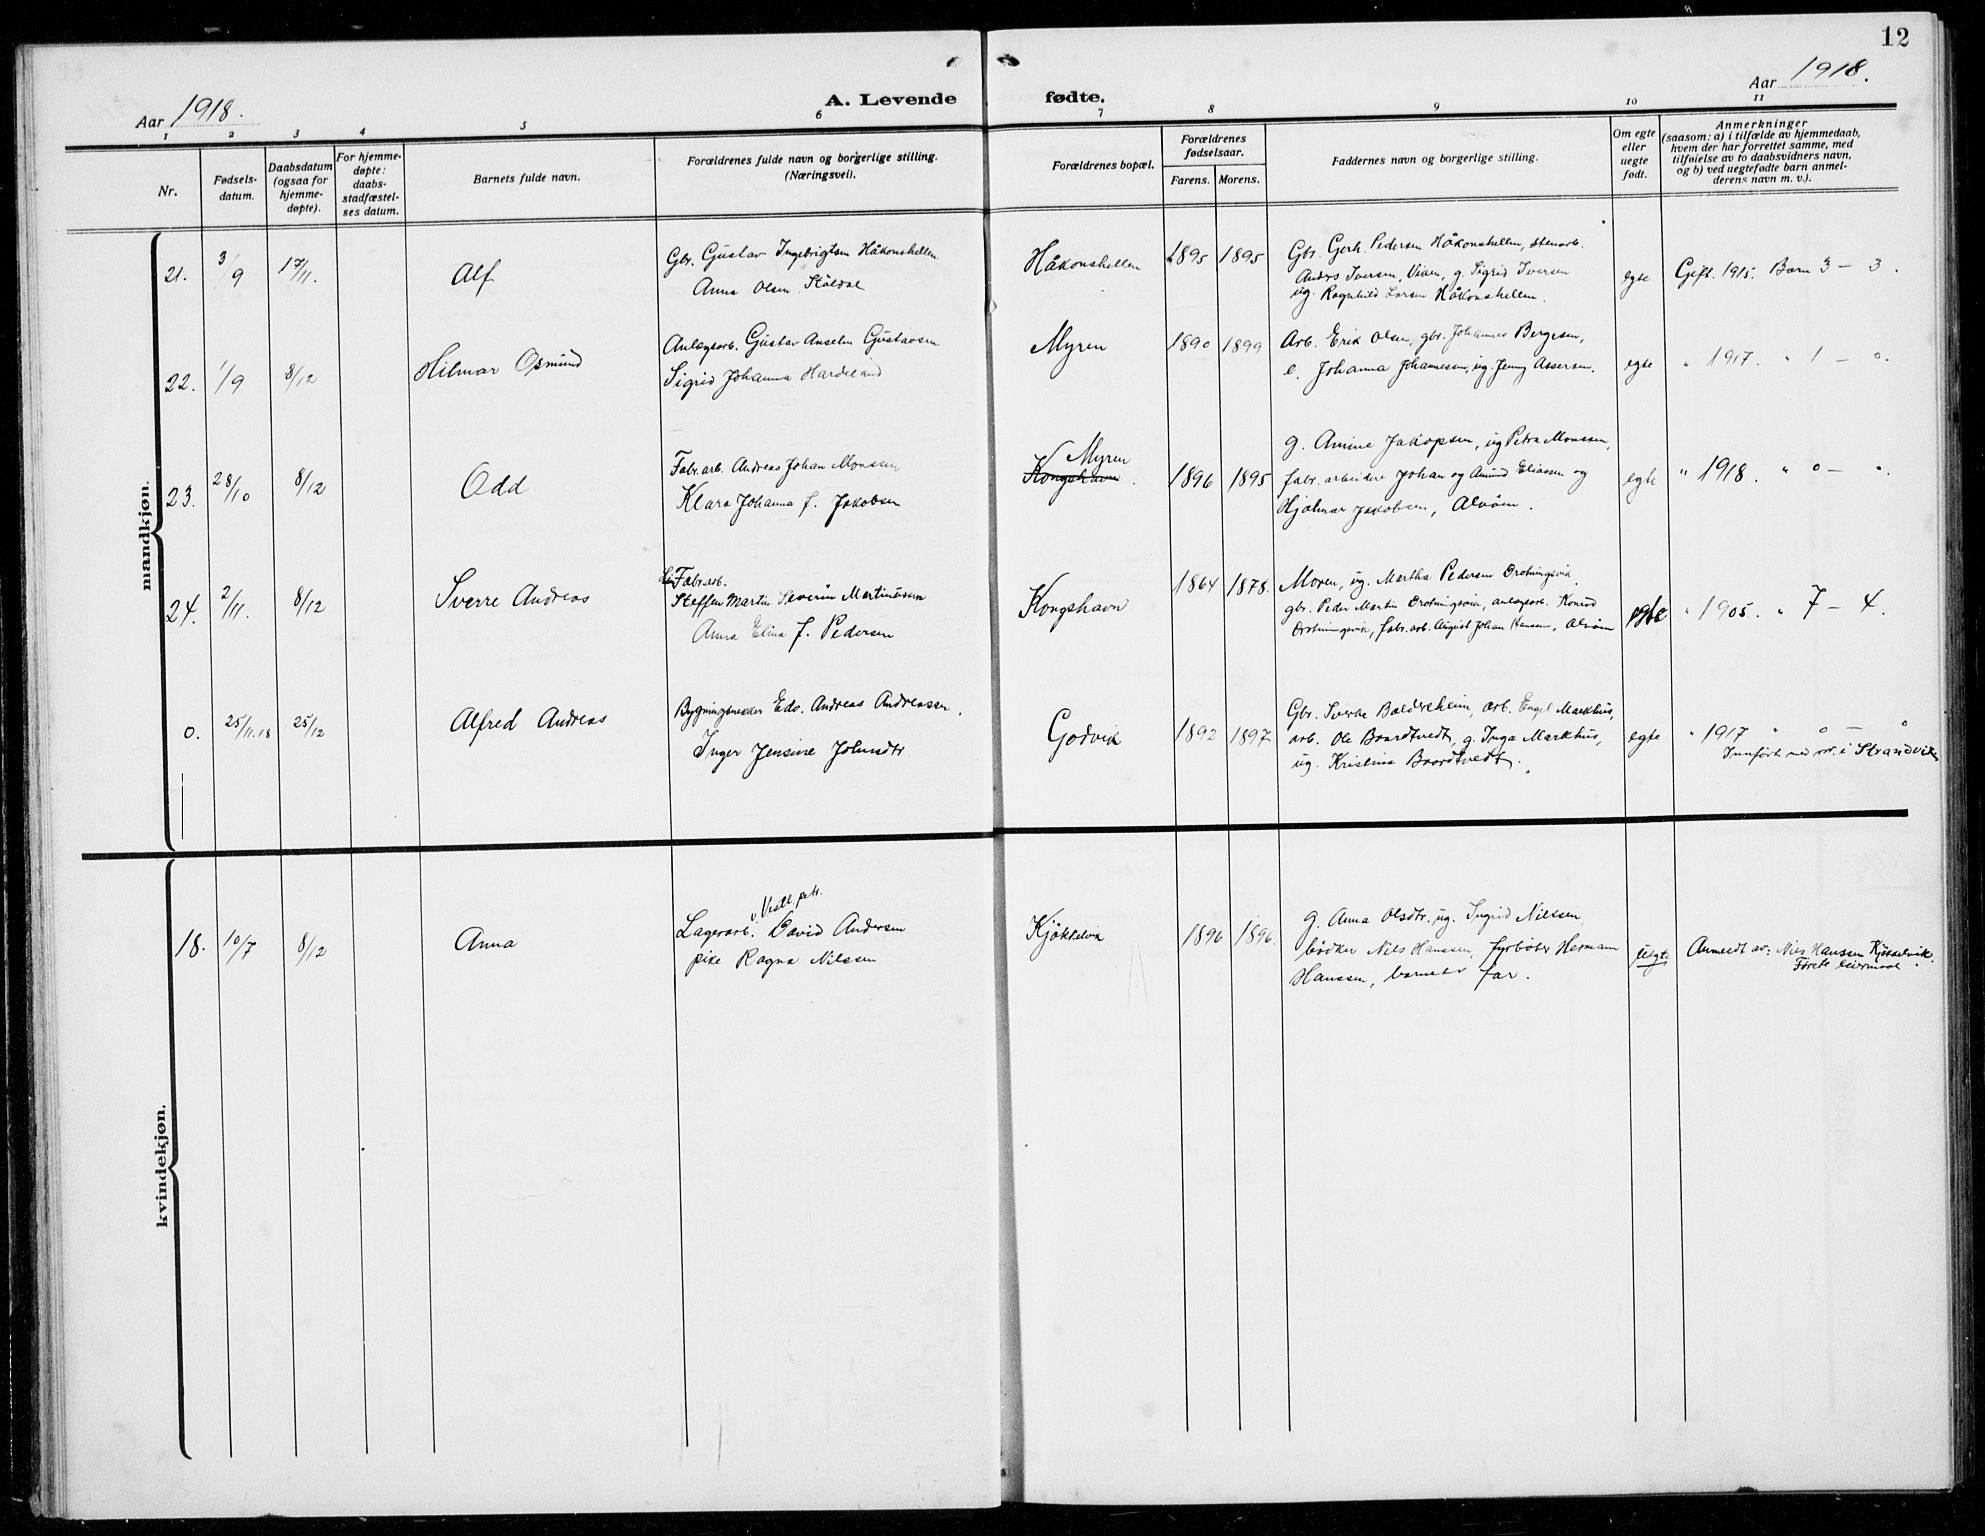 12
Aar 1918.
A. Levende fødte.
Aar 1918.
1 2 3 4 5 6 7 8 9 10 11
Nr.
Fødsels-
datum.
Daabsdatum
(ogsaa for
hjemme-
døpte).
For hjemme-
døpte:
daabs-
stadfæstel-
ses datum.
Barnets fulde navn.
Forældrenes fulde navn og borgerlige stilling.
(Næringsvei).
Forældrenes bopæl.
Forældrenes
fødselsaar.
Farens. Morens.
Faddernes navn og borgerlige stilling.
Om egte
eller
uegte
født.
Anmerkninger
(saasom: a) i tilfælde av hjemmedaab,
hvem der har forrettet samme, med
tilføielse av to daabsvidners navn,
og b) ved uegtefødte barn anmel-
derens navn m. v.).
mandkjøn.
21. 3/9 17/11. Alf
Gbr. Gustav Ingebrigtsen Håkonshellen
Anna Olsen Støldal
Håkonshellen 1895 1895
Gbr. Gerh. Pedersen Håkonshellen, stenarb.
Anders Iversen, Viken, g. Sigrid Iversen
ug. Ragnhild Larsen Håkonshellen.
egte Gift. 1915. Barn 3 – 3.
22. 1/9 8/12 Hilmar Osmund
Anlægsarb. Gustav Anselm Gustavsen
Sigrid Johanna Hardeland
Myren 1890 1899
Arb. Erik Olsen, gbr. Johannes Bergesen,
e. Johanna Johannessen, ug. Jenny Assersen.
egte " 1917. " 1 – 0.
23. 28/10 8/12 Odd
Fabr. arb. Andreas Johan Monssen
Klara Johanna f. Jakobsen
Myren
Kongshavn. 1896 1895
g. Amine Jakopsen, ug Petra Monssen,
fabr. arbeidere Johan og Amund Eliassen og
Hjalmar Jakobsen, Alvøen.
egte " 1918. " 0 – 0.
24. 2/11. 8/12 Sverre Andreas
Fabr.arb.
Steffen Martin Severin Martinussen
Anna Elina f. Pedersen
Kongshavn 1864 1878.
Moren, ug. Martha Pedersen Drotningsvik.
gbr. Peder Martin Drotningsvik, anlægsarb. Konrad
Drotningsvik, fabr. arb. August Johan Hansen, Alvøen
egte " 1905. " 7 – 4.
0. 25/11.18 25/12 Alfred Andreas
Bygningsnekker Edv. Andreas Andreassen.
Inger Jensine Johnsdtr
Godvik 1892 1897
Gbr. Sverke Baldersheim, arb. Engel Markhus,
arb. Ole Baardtvedt, g. Inga Markhus,
ug. Kristina Baardtvedt.
egte " 1917 " 0 – 0
Innført med nr. i Strandvik
kvindekjøn.
18. 10/7 8/12 Anna
Lagerarb. David Andersen
pike Ragna Nilssen
Kjøkkelvik 1896 1896.
g. Anna Olsdtr. ug. Ingrid Nilssen
bødker Nils Hanssen, fyrbøter Hermann
Hanssen, barnets far.
uegte Anmeldt av: Nils Hanssen Kjøkkelvik.
Første leiermaal